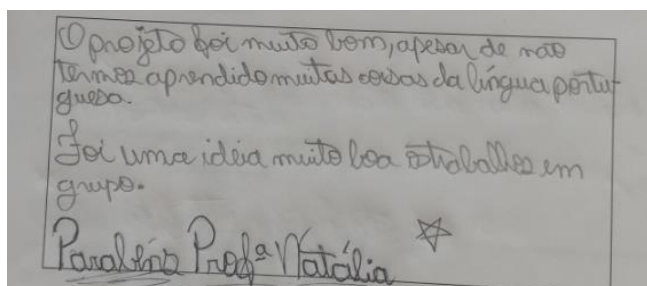 O projeto foi muito bom, apesar de não
termos aprendido muitas coisas da língua portu-
guesa.
Foi uma idéia muito boa os trabalhos em
grupo.
Parabéns Profª Natália